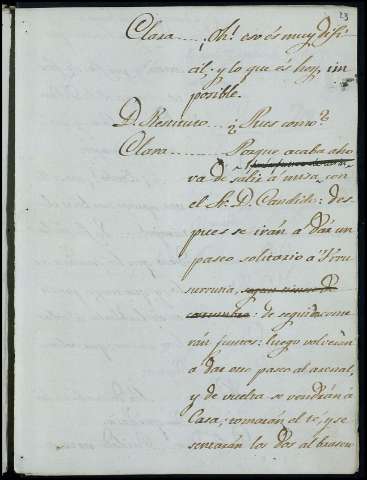 23
Clara ..... ¡Oh! eso és muy difi-
cil; y lo que és hoy, im
posible.
D. Restituto ..... ¿Pues como?
Clara ..... Porque acaba aho
ra de salir à misa con
el Sr. D. Candido: des
pues se irán à dàr un
paseo solitario à
de seguida come
rán juntos: luego volveràn
à dar otro paseo al arenal,
y de vuelta se vendràn à
Casa; tomaràn el té, y se
sentaràn los dos al brasero